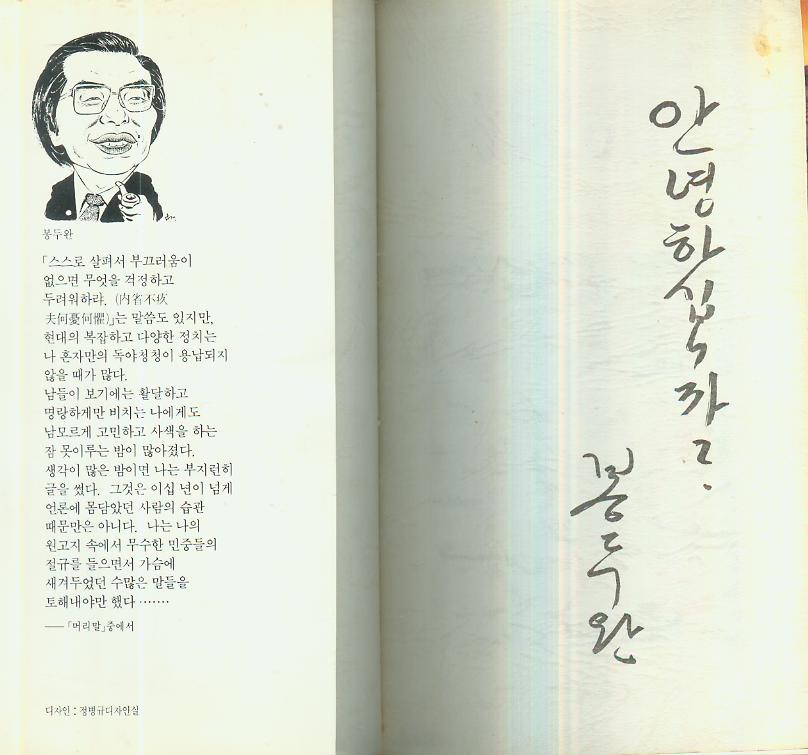 봉두완
「스스로 살펴서 부끄러움이
없으면 무엇을 걱정하고
두려워하랴. (内省不疚
夫何憂何懼)」는 말씀도 있지만,
현대의 복잡하고 다양한 정치는
나 혼자만의 독야청청이 용납되지
않을 때가 많다.
남들이 보기에는 활달하고
명랑하게만 비치는 나에게도
남모르게 고민하고 사색을 하는
잠 못이루는 밤이 많아졌다.
생각이 많은 밤이면 나는 부지런히
글을 썼다. 그것은 이십 년이 넘게
언론에 몸담았던 사람의 습관
때문만은 아니다. 나는 나의
원고지 속에서 무수한 민중들의
절규를 들으면서 가슴에
새겨두었던 수많은 말들을
토해내야만 했다 ·······
──「머리말」중에서
디자인 : 정병규디자인실
안녕하십니까?
봉두완